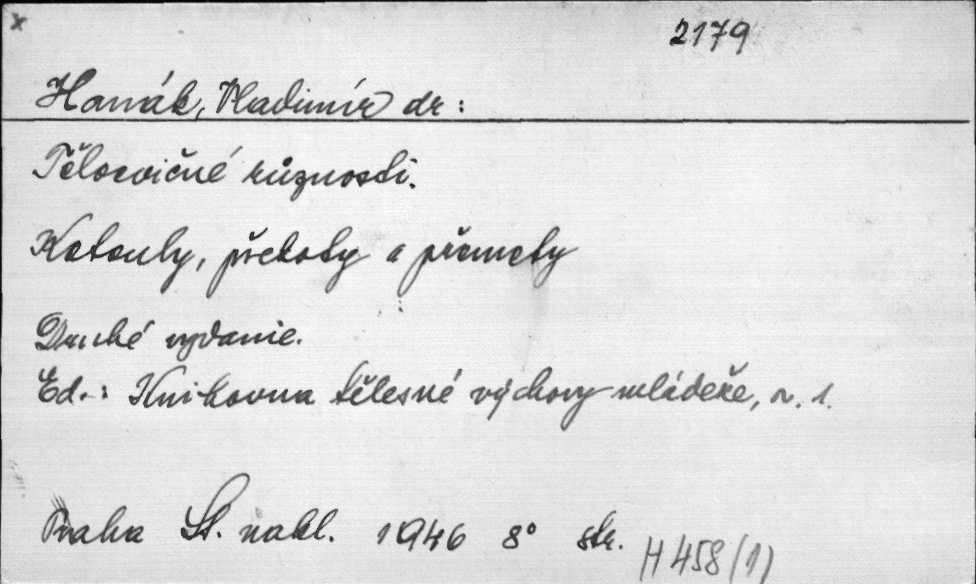 x
2179
Hanák, Vladimír dr:
Tělocvičné různosti.
Kotouly, překoty a přemety
Druhé vydanie.
Ed.: Knihovna tělesné výchovy mládeže, sv. 1.
Praha St. nakl. 1946 8° str.
H 458/1)